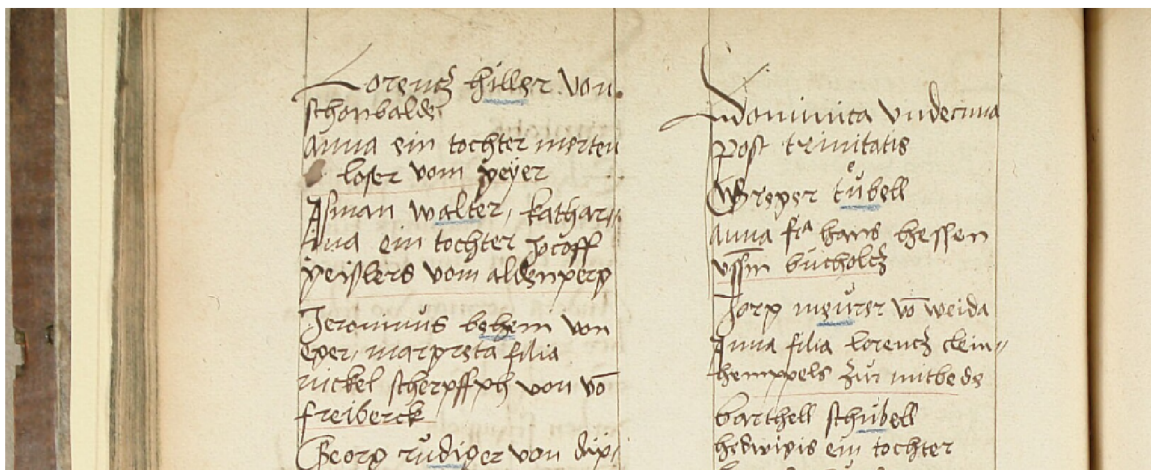 Lorencz hiller von
schonbalde
anna ein tochter merten
loser vom geyer
Asman walter, kathar=
ina ein tochter Jocoff
geislers vom aldenperg
Jeronimus behem von
eger, margreta filia
nickel scherpffgh von vō
freiberck
Georg rudiger von
Dominica undecima
post trinitatis
Greger tůbell
anna fīa hans hessen
ussm bucholcz
Jorg meurer vō weida
Anna filia lorencz clein=
hemppels zur mitbede
barthell schubell
hedwigis ein tochter